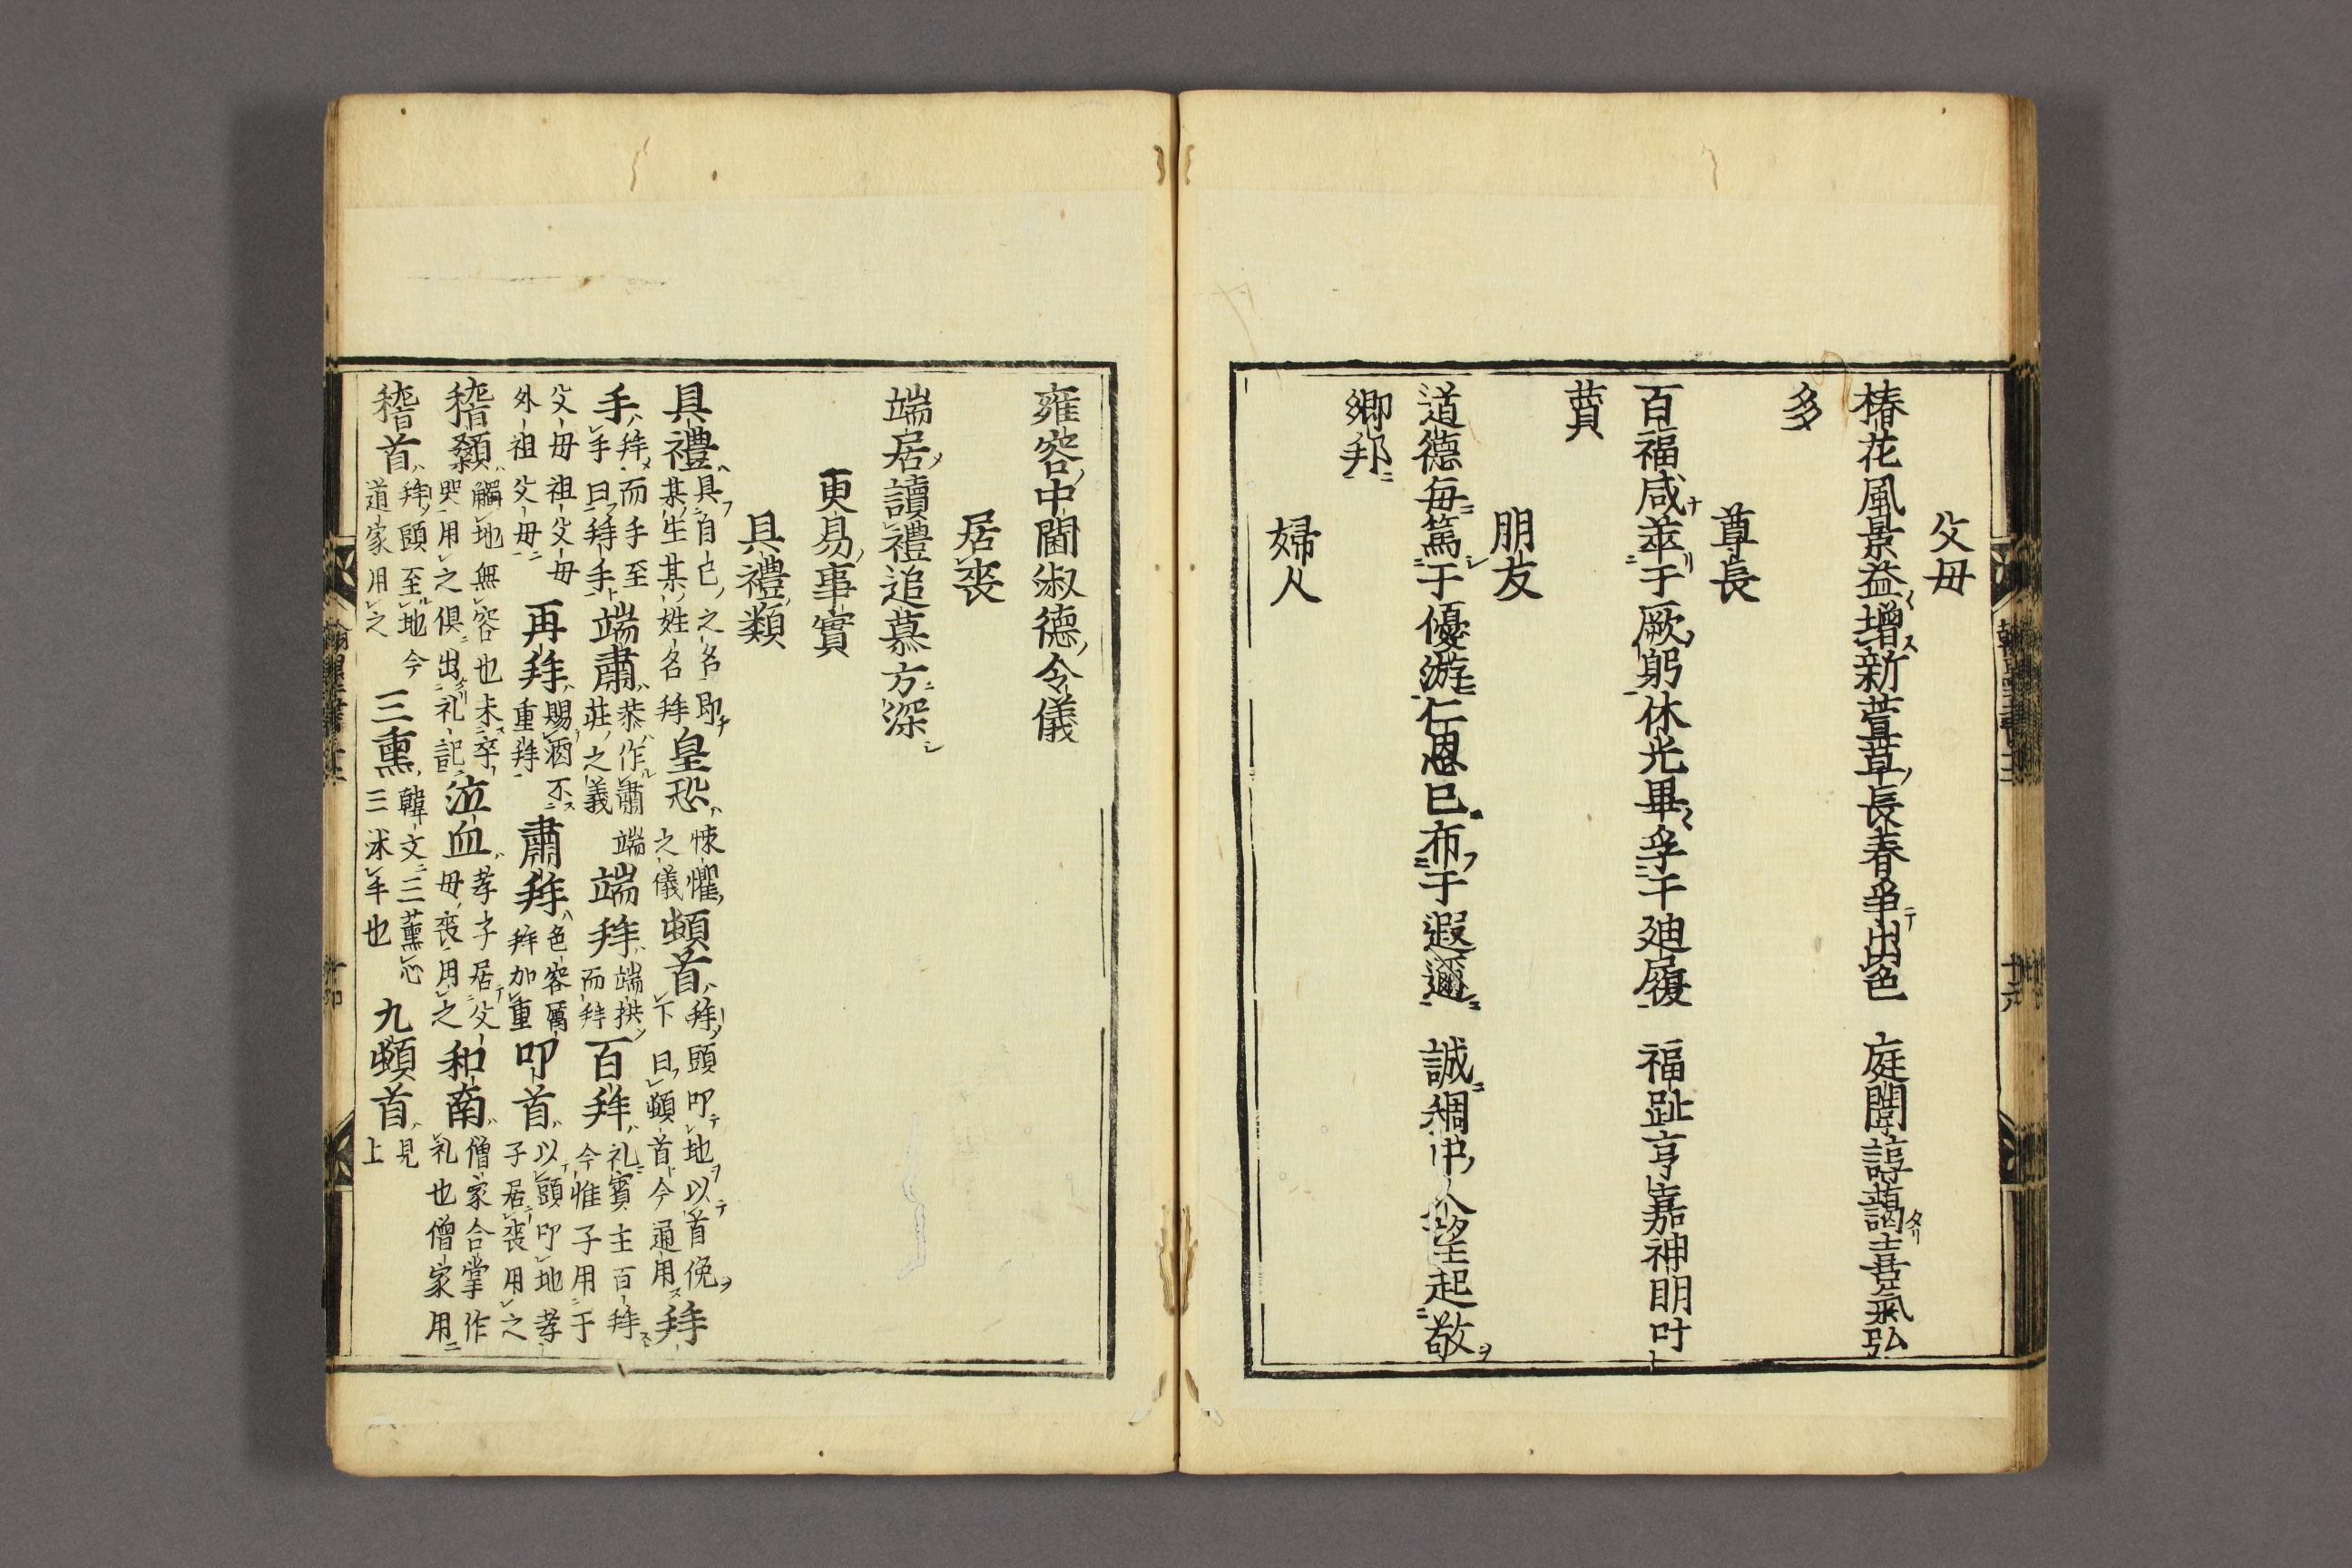 父母
椿花風景益增新萱草長春爭出色　庭闈諄藹喜氣弘
多
尊長
百福咸萃于厥躬休光畢孚于廸履　福趾亨嘉神明叶
賛
朋友
道德每篤于優游仁恩已布于遐邇　誠稠中人望起敬
鄉邦
婦人
雍容中閫淑德令儀
居喪
端居讀禮追慕方深
更易事實
具禮類
具禮具自己之名即某生某姓名拜皇恐悚懼之儀頓首拜頭叩地以首俛下曰頓首今通用拜
手拜而手至手曰拜手端肅恭作肅莊之義端端拜端拱而拜百拜礼賓主百拜今惟子用于
父母祖父母外祖父母再拜賜酒不重拜肅拜色容厲拜加重叩首以頭叩地孝子居喪用之
稽顙觸地無容也未卒哭用之俱出礼記泣血孝子居父母喪用之和南僧家合掌作礼也僧家用
稽首拜頭至地今道家用之三熏韓文三薰三沐手也九頓首見上